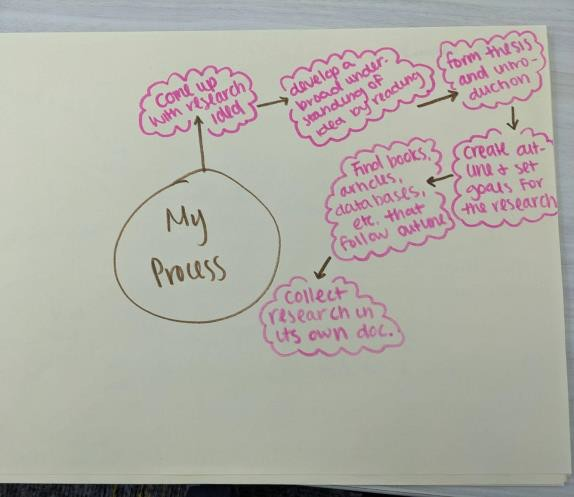 My
Process
come up
with research
idea
develop a
broad under-
standing of
idea by reading
form thesis
and intro-
duction
create out-
line & set
goals for
the research
Find books,
articles,
databases,
etc. that
follow outline
collect
research in
its own doc.